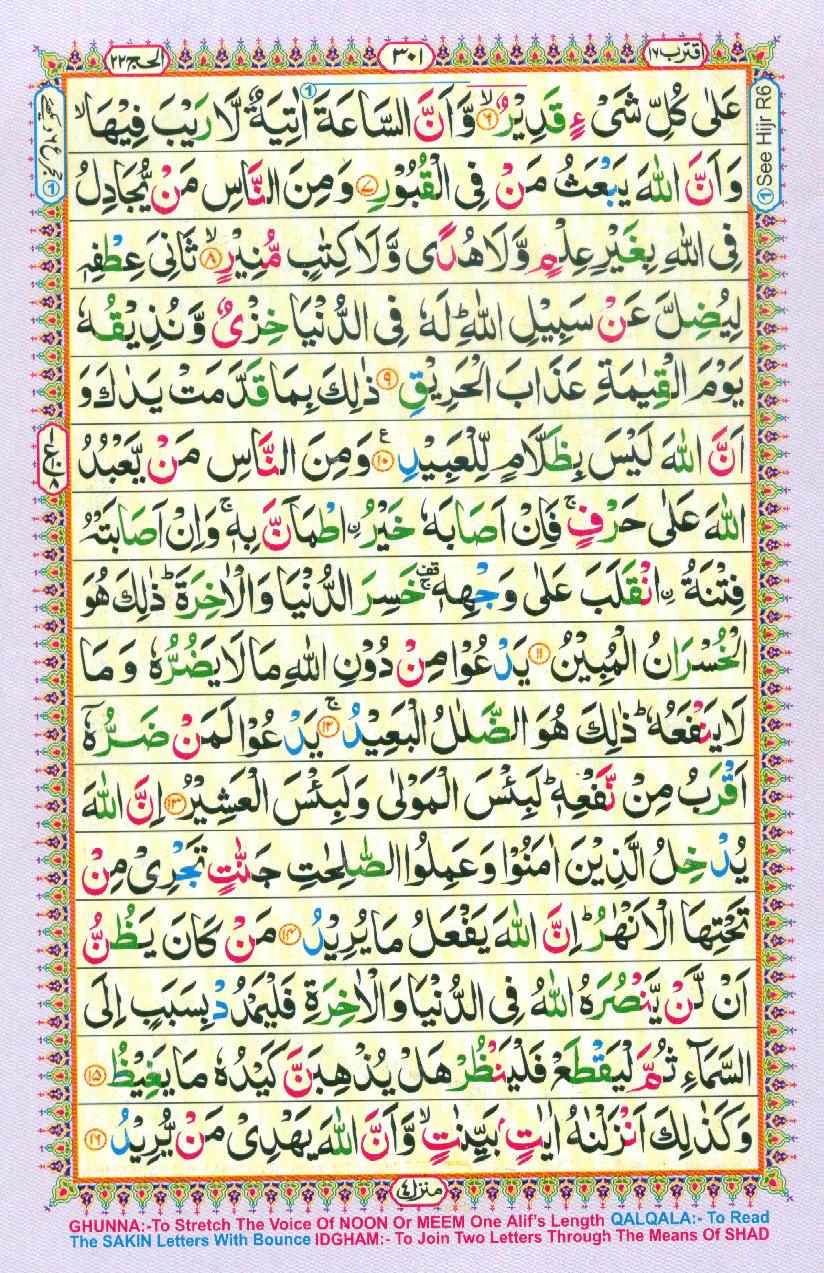 الحج ٢٢
٣٠١
اقترب ١٧
عَلٰى كُلِّ شَیْءٍ قَدِیْرٌ ۙ‏﴿۶﴾ وَّ اَنَّ السَّاعَةَ اٰتِیَةٌ لَّا رَیْبَ فِیْهَا ۙ
وَ اَنَّ اللّٰهَ یَبْعَثُ مَنْ فِی الْقُبُوْرِ ﴿۷﴾ وَ مِنَ النَّاسِ مَنْ یُّجَادِلُ
فِی اللّٰهِ بِغَیْرِ عِلْمٍ وَّ لَا هُدًى وَّ لَا كِتٰبٍ مُّنِیْرٍ ۙ‏﴿۸﴾ ثَانِیَ عِطْفِهٖ
لِیُضِلَّ عَنْ سَبِیْلِ اللّٰهِ ؕ لَهٗ فِی الدُّنْیَا خِزْیٌ وَّ نُذِیْقُهٗ
یَوْمَ الْقِیٰمَةِ عَذَابَ الْحَرِیْقِ ﴿۹﴾ ذٰلِكَ بِمَا قَدَّمَتْ یَدٰكَ وَ
اَنَّ اللّٰهَ لَیْسَ بِظَلَّامٍ لِّلْعَبِیْدِ ﴿۱۰﴾ ع وَ مِنَ النَّاسِ مَنْ یَّعْبُدُ
اللّٰهَ عَلٰى حَرْفٍ ۚ فَاِنْ اَصَابَهٗ خَیْرُ ۨاطْمَاَنَّ بِهٖ ۚ وَ اِنْ اَصَابَتْهُ
فِتْنَةُ ۨانْقَلَبَ عَلٰى وَجْهِهٖ ۚ قف خَسِرَ الدُّنْیَا وَ الْاٰخِرَةَ ؕ ذٰلِكَ هُوَ
الْخُسْرَانُ الْمُبِیْنُ ﴿۱۱﴾ یَدْعُوْا مِنْ دُوْنِ اللّٰهِ مَا لَا یَضُرُّهٗ وَ مَا
لَا یَنْفَعُهٗ ؕ ذٰلِكَ هُوَ الضَّلٰلُ الْبَعِیْدُ ۚ‏﴿۱۲﴾ یَدْعُوْا لَمَنْ ضَرُّهٗۤ
اَقْرَبُ مِنْ نَّفْعِهٖ ؕ لَبِئْسَ الْمَوْلٰى وَ لَبِئْسَ الْعَشِیْرُ ﴿۱۳﴾ اِنَّ اللّٰهَ
یُدْخِلُ الَّذِیْنَ اٰمَنُوْا وَ عَمِلُوا الصّٰلِحٰتِ جَنّٰتٍ تَجْرِیْ مِنْ
تَحْتِهَا الْاَنْهٰرُ ؕ اِنَّ اللّٰهَ یَفْعَلُ مَا یُرِیْدُ ﴿۱۴﴾ مَنْ كَانَ یَظُنُّ
اَنْ لَّنْ یَّنْصُرَهُ اللّٰهُ فِی الدُّنْیَا وَ الْاٰخِرَةِ فَلْیَمْدُدْ بِسَبَبٍ اِلَى
السَّمَآءِ ثُمَّ لْیَقْطَعْ فَلْیَنْظُرْ هَلْ یُذْهِبَنَّ كَیْدُهٗ مَا یَغِیْظُ ﴿۱۵﴾
وَ كَذٰلِكَ اَنْزَلْنٰهُ اٰیٰتٍۭ بَیِّنٰتٍ ۙ وَّ اَنَّ اللّٰهَ یَهْدِیْ مَنْ یُّرِیْدُ ﴿۱۶﴾
① See Hijr R6
منزل ٤
GHUNNA:-To Stretch The Voice Of NOON Or MEEM One Alif's Length QALQALA:- To Read
The SAKIN Letters With Bounce IDGHAM:- To Join Two Letters Through The Means Of SHAD